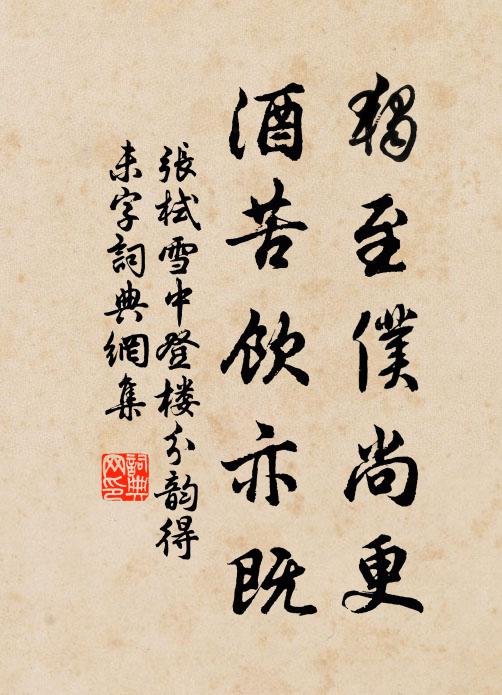 独至僕尚更
酒苦飲亦既
張栻雪中登楼分韵得
未字詞典網集
詞典网印